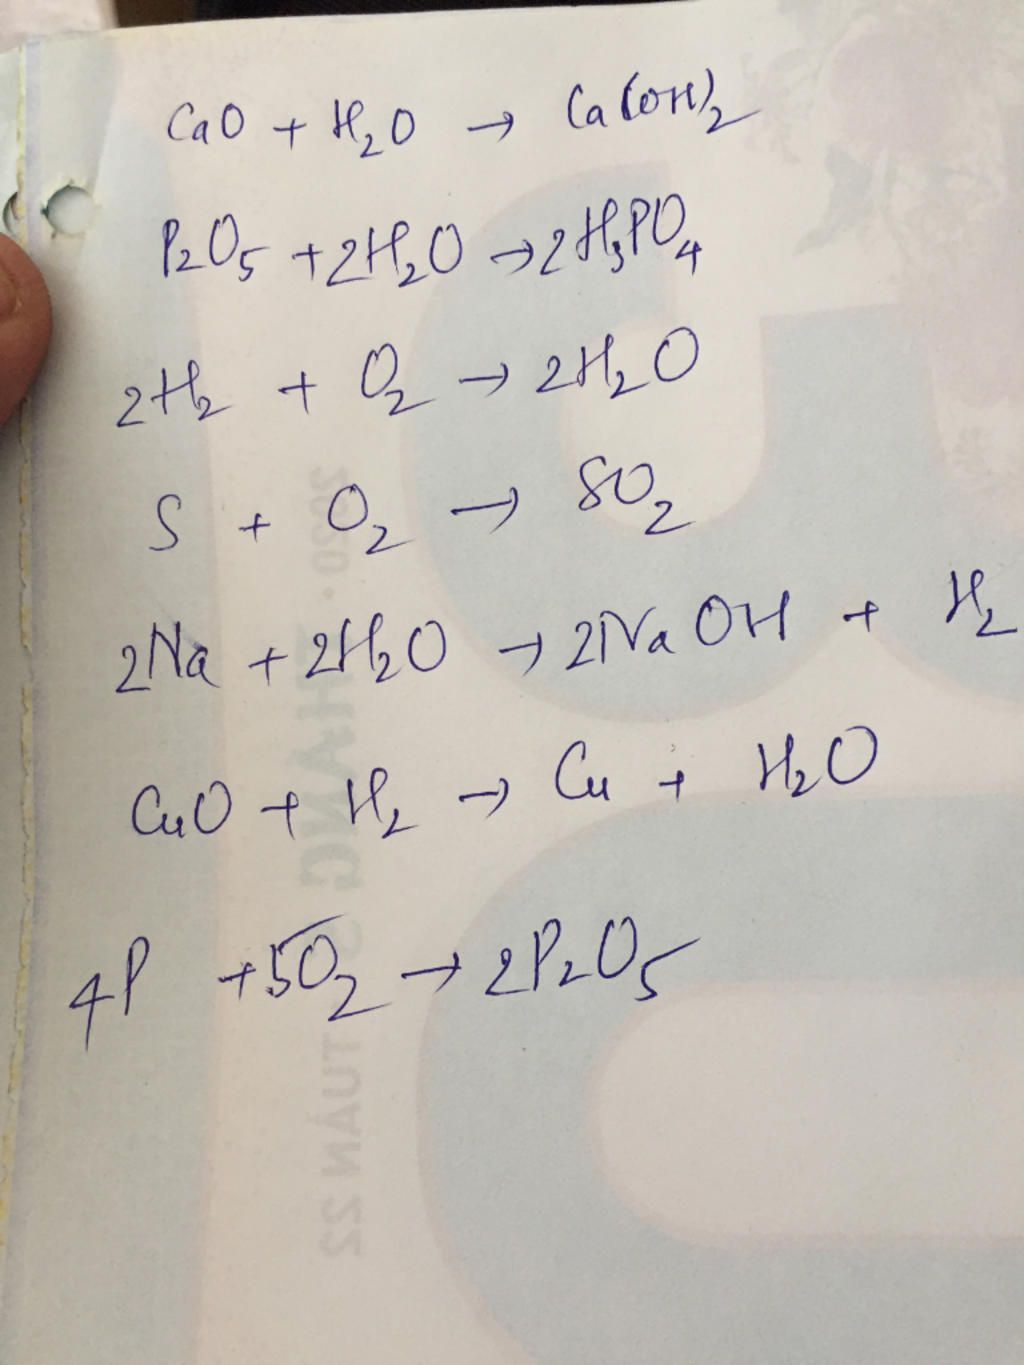 CaO + H₂O → Ca(OH)₂
P₂O₅ + 2H₂O → 2H₃PO₄
2H₂ + O₂ → 2H₂O
S + O₂ → SO₂
2Na + 2H₂O → 2NaOH + H₂
CuO + H₂ → Cu + H₂O
4P + 5O₂ → 2P₂O₅